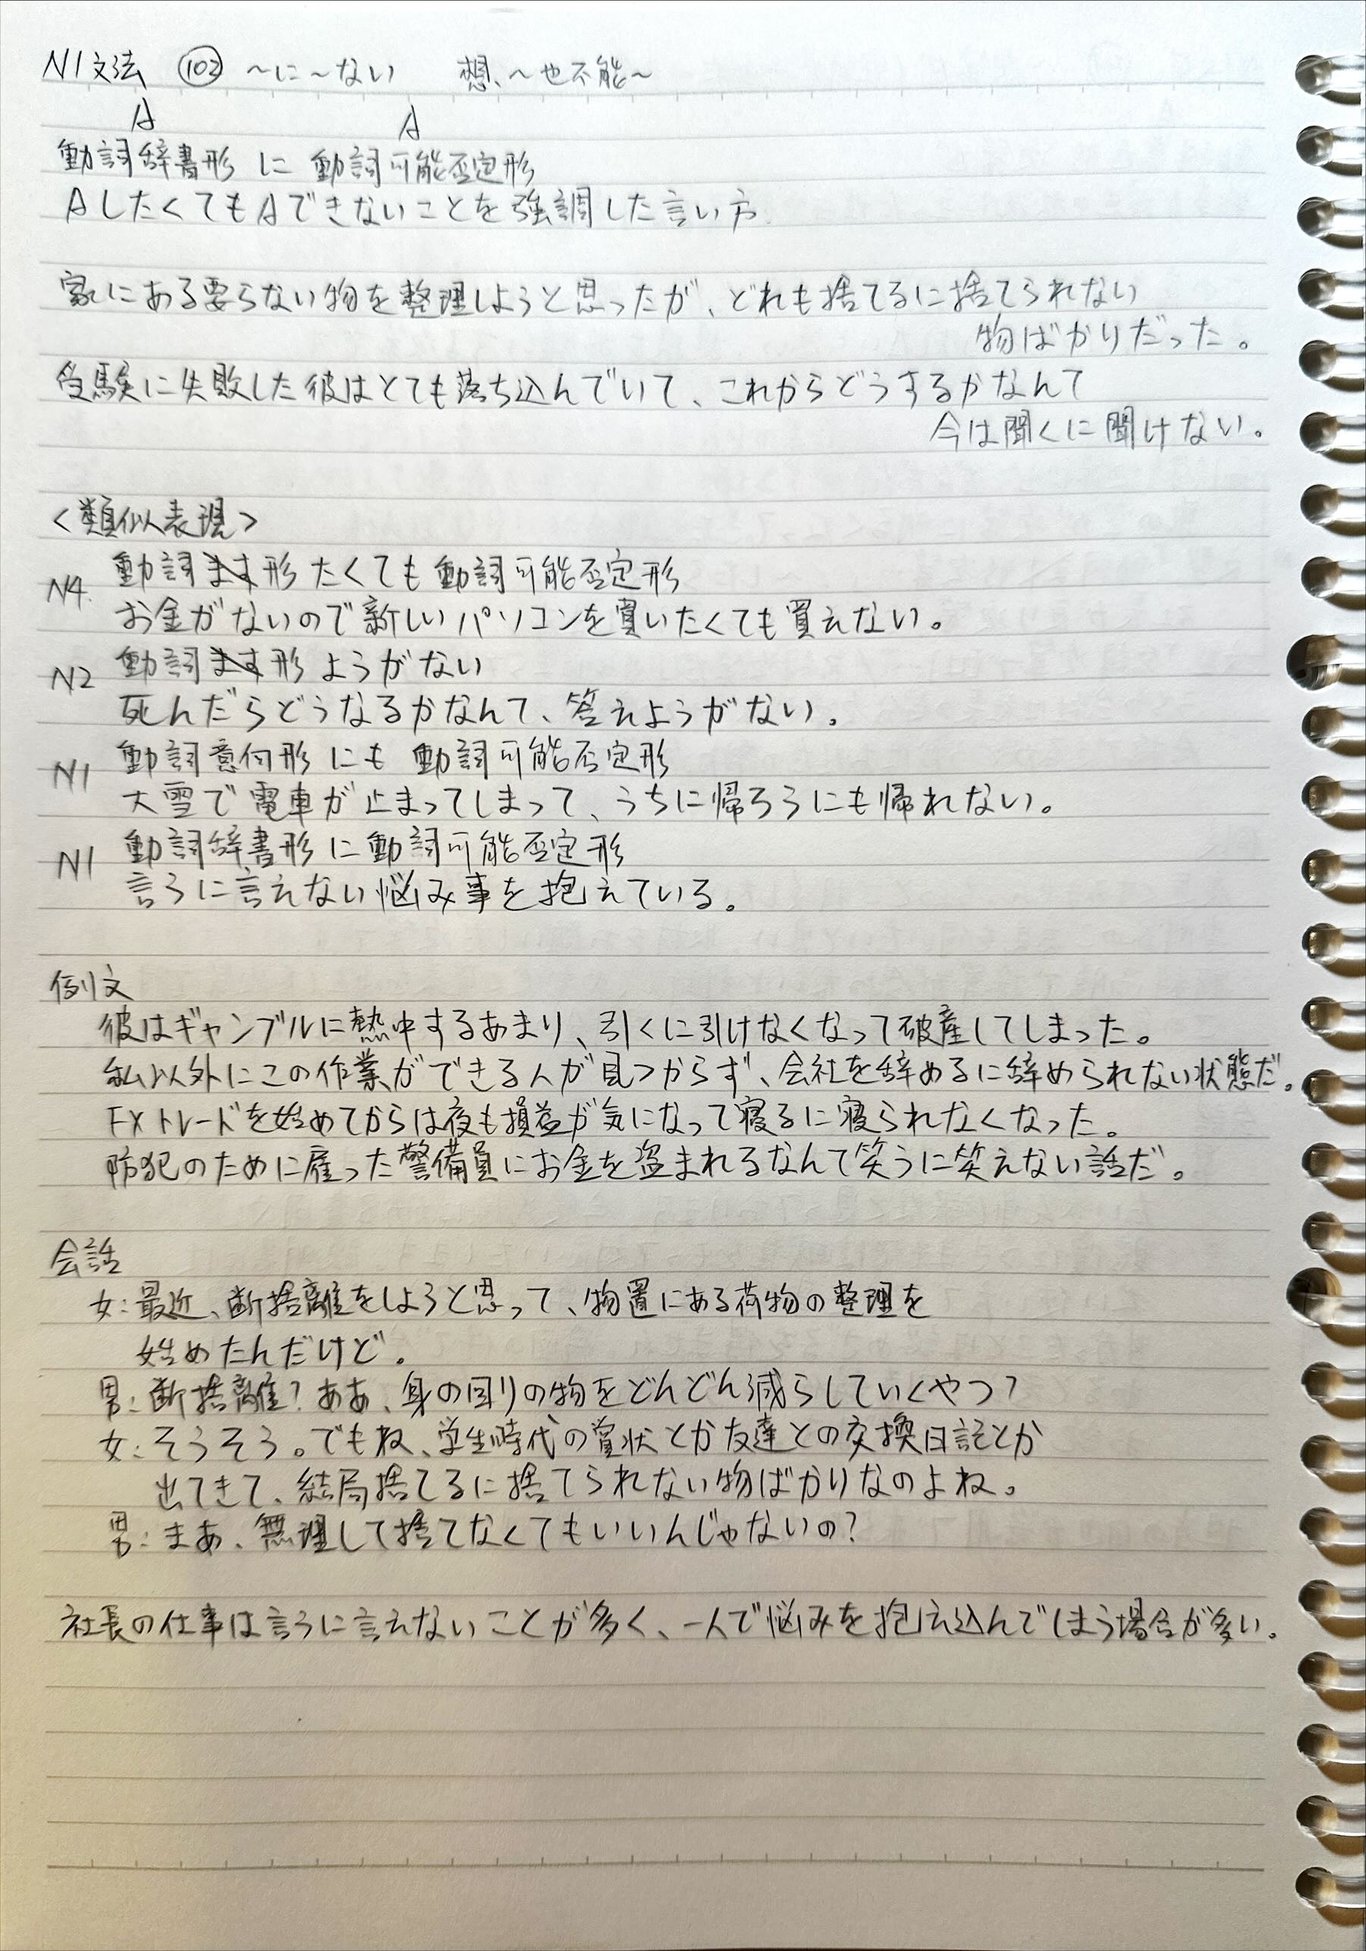 N1文法 102 ～に～ない 想、～也不能～
A A
動詞辞書形 に 動詞可能否定形
Aしたくてもできないことを強調した言い方.
家にある要らない物を整理しようと思ったが、どれも捨てるに捨てられない
物ばかりだった。
受験に失敗した彼はとても落ち込んでいて、これからどうするかなんて
今は聞くに聞けない。
<類似表現>
N4. 動詞ます形 たくても 動詞可能否定形
お金がないので新しいパソコンを買いたくても買えない。
N2 動詞ます形 ようがない
死んだらどうなるかなんて、答えようがない。
N1 動詞意向形 にも 動詞可能否定形
大雪で電車が止まってしまって、うちに帰ろうにも帰れない。
N1 動詞辞書形 に動詞可能否定形
言うに言えない悩み事を抱えている。
例文
彼はギャンブルに熱中するあまり、引くに引けなくなって破産してしまった。
私以外にこの作業ができる人が見つからず、会社を辞めるに辞められない状態だ。
FXトレードを始めてからは夜も損益が気になって寝るに寝られなくなった。
防犯のために雇った警備員にお金を盗まれるなんて笑うに笑えない話だ。
会話
女:最近、断捨離をしようと思って、物置にある荷物の整理を
始めたんだけど。
男:断捨離?ああ、身の回りの物をどんどん減らしていくやつ?
女:そうそう。でもね、学生時代の賞状とか友達との交換日記とか
出てきて、結局捨てるに捨てられない物ばかりなのよね。
男:まあ、無理して捨てなくてもいいんじゃないの?
社長の仕事は言うに言えないことが多く、一人で悩みを抱え込んでしまう場合が多い。